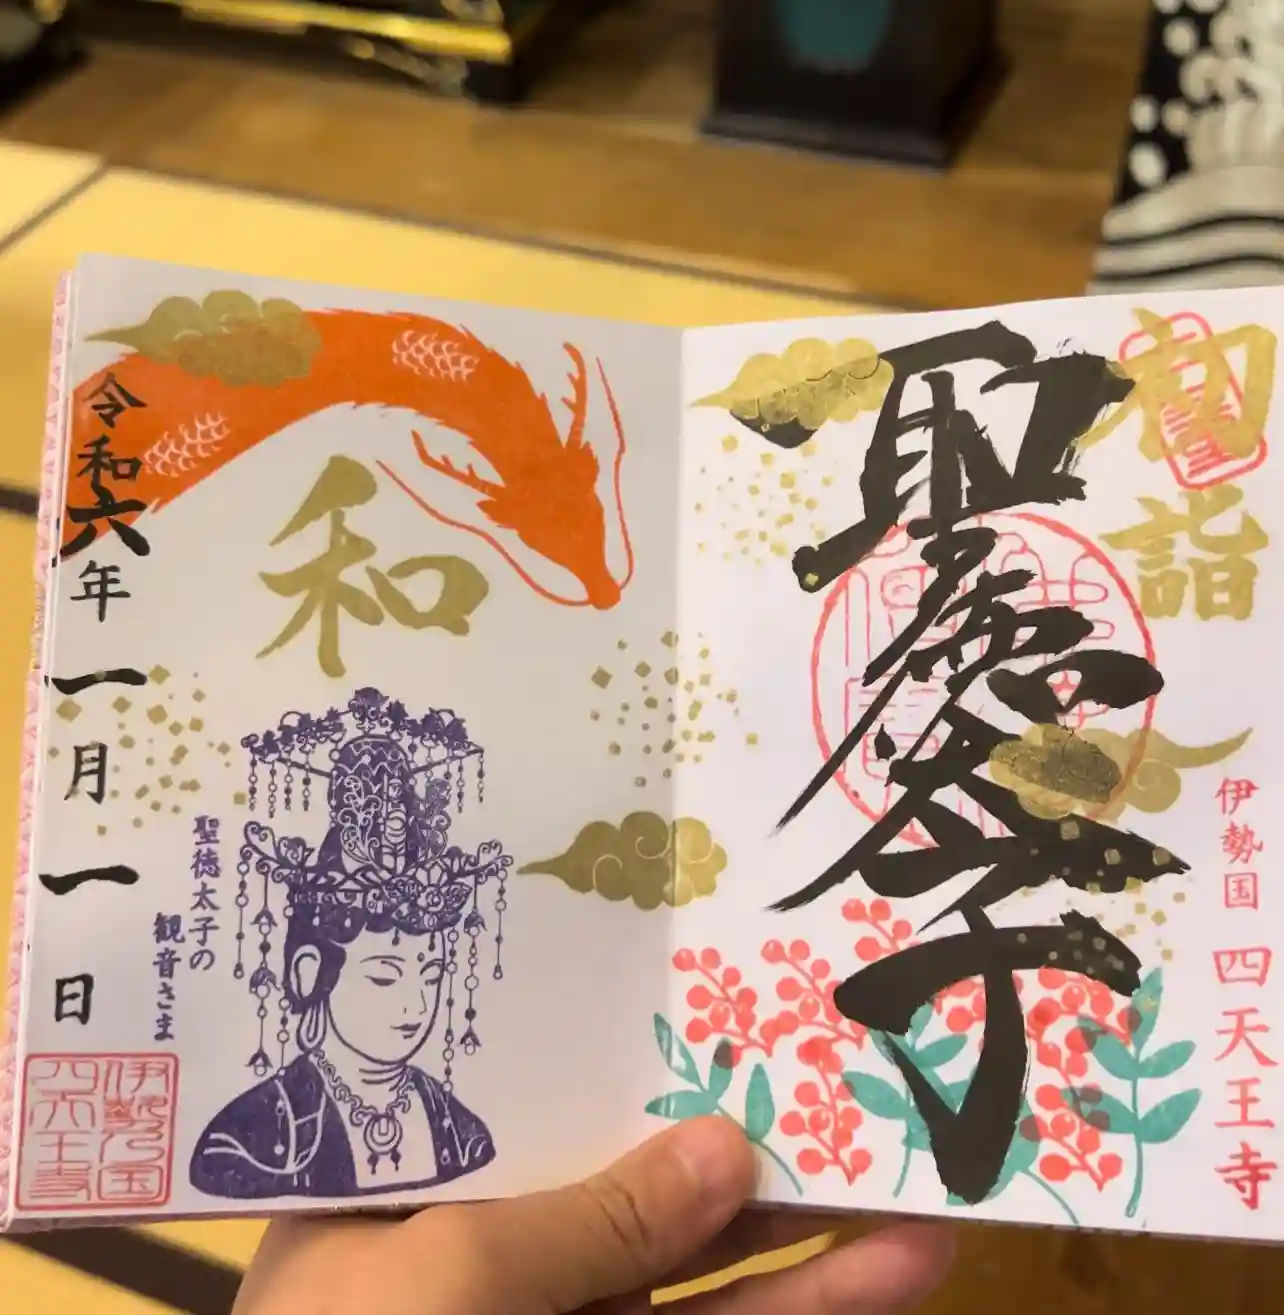 初詣
聖徳太子
伊勢国 四天王寺
和
令和六年一月一日
聖徳太子の
観音さま
伊勢乃国
四天王寺